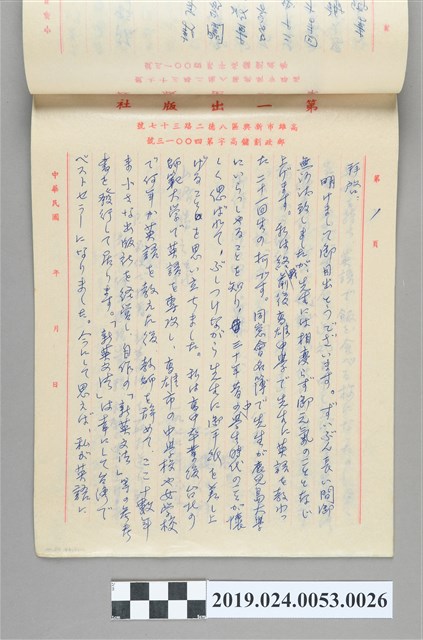 第一出版社
高雄市新興區八德二路三十七號
郵政劃儲高字第四〇〇一三號
第 1 頁
拝啓、
明けまして御目出とうございます。ずいぶん長い間御
無沙汰致しましたが先生には相変らず御元気のことと存じ
上げます。私は終戦前後高雄中学で先生に英語を教わっ
た二十一回生の柯です。同窓会名簿で先生が鹿児島大学
にいらっしゃることを知り、三十年昔の中学生時代のことが懐
しく思ばれて、ぶしつけながら先生に御手紙を差し上
げることを思い立ちました。私は高中卒業後台北の
師範大学で英語を専攻し、高雄市の中学校や女学校
で何年か英語を教えた後、教師を辞めてここ十数年
来小さな出版社を経営し、自作の「新英文法」等の参考
書を発行して居ります。「新英文法」は幸にして台湾で
ベストセラーになりました。今にして思えば、私が英語に
中華民國 年 月 日
2019.024.0053.0026